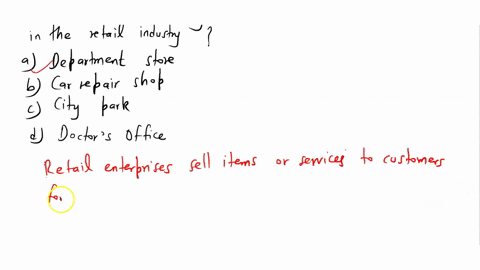 in the retail industry ?
a) Department store
b) Car repair shop
c) City park
d) Doctor's Office
Retail enterprises sell items or services to customers
fo